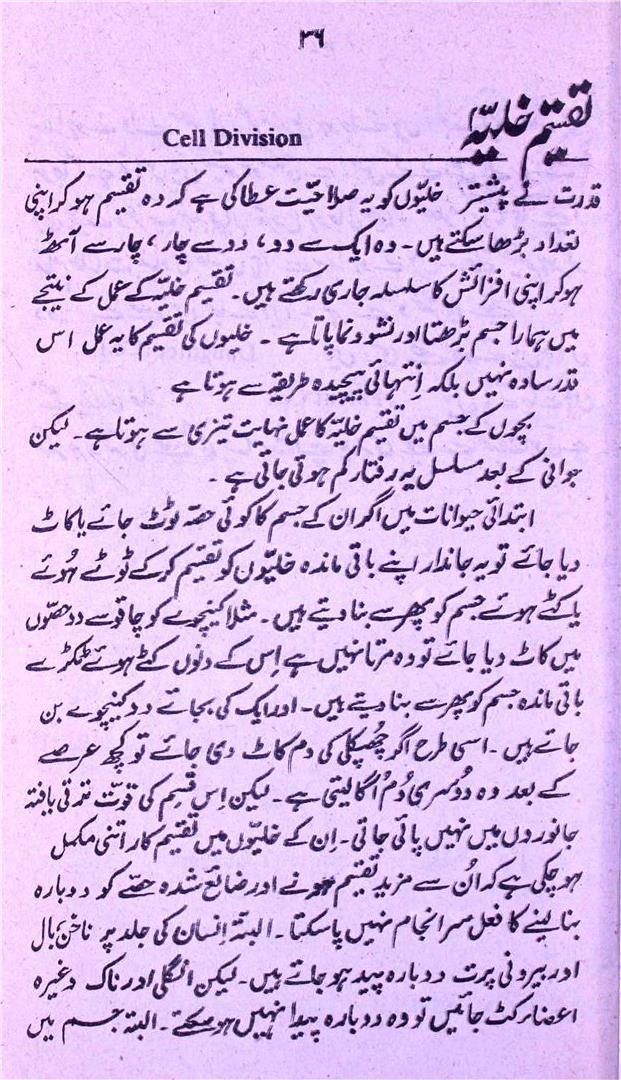 ۳۶
تقسیم خلیّہ
Cell Division
قدرت نے بیشتر خلیّوں کو یہ صلاحیّت عطا کی ہے کہ وہ تقسیم ہو کر اپنی
تعداد بڑھا سکتے ہیں ۔ وہ ایک سے دو ، دو سے چار ، چار سے آٹھ
ہو کر اپنی افزائش کا سلسلہ جاری رکھتے ہیں ۔ تقسیم خلیّہ کے عمل کے نیتجے
میں ہمارا جسم بڑھتا اور نشوونما پاتا ہے ۔ خلیوں کی تقسیم کا یہ عمل اس
قدر سادہ نہیں بلکہ اِنتہائی پیچیدہ طریقہ سے ہوتا ہے
بچوں کے جسم میں تقسیم خلیّہ کا عمل نہایت تیزی سے ہوتا ہے ۔ لیکن
جوانی کے بعد مسلسل یہ رفتار کم ہوتی جاتی ہے ۔
ابتدائی حیوانات میں اگر ان کے جسم کا کوئی حصّہ ٹوٹ جائے یا کاٹ
دیا جائے تو یہ جاندار اپنے باقی ماندہ خلیّوں کو تقسیم کر کے ٹوٹے ہُوئے
یا کٹے ہوئے جسم کو پھر سے بنا دیتے ہیں ۔ مثلا کینچوے کو چاقو سے دو حصّوں
میں کاٹ دیا جائے تو وہ مرتا نہیں ہے اِس کے دنوں کٹے ہوئے ٹکڑے
باقی ماندہ جسم کو پھر سے بنا دیتے ہیں ۔ اور ایک کی بجائے دو کینچوے بن
جاتے ہیں ۔ اسی طرح اگر چُھپکلی کی دم کاٹ دی جائے تو کچھ عرصے
کے بعد وہ دوُسری دُم اُگا لیتی ہے ۔ لیکن اِس قسِم کی قوت ترقی یافتہ
جانوروں میں نہیں پائی جاتی ۔ اِن کے خلیّوں میں تقسیم کار اتنی مکمل
ہو چکی ہے کہ اُن سے مزید تقیسم ہونے اور ضائع شدہ حصّے کو دوبارہ
بنا لینے کا فعل سر انجام نہیں پا سکتا ۔ البتہ اِنسان کی جلد پر ناخن، بال
اور بیرونی پرت دوبارہ پید ہو جاتے ہیں ۔ لیکن انگلی اور ناک وغیرہ
اعضاء کٹ جائیں تو وہ دوبارہ پیدا نہیں ہو سکتے ۔ البتہ جسم میں